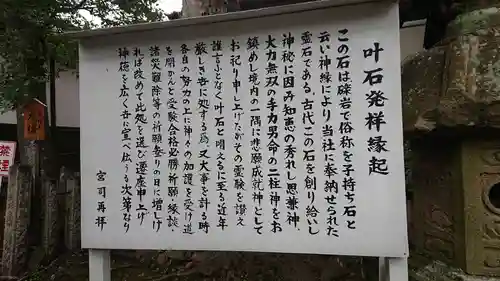 叶石発祥縁起
この石は礫岩で俗称を子持ち石と
云い神縁により当社に奉納せられた
霊石である。古代この石を創り給いし
神秘に因み知恵の秀れし思兼神、
大力無双の手力男命の二柱神をお
鎮めし境内の一隅に悲願成就神として
お祀り申し上げたがその霊験を讃え
謹言ふとなく叶石と唱えるに至る近年
厳しき世に処する為、又大事を計る時
各自の努力の上に神々の加護を受け道
を開かんと受験合格必勝祈願縁談・
諸災難除等の祈願参りの日に増しけ
れば改めて此処を選び遷座申し上げ
神徳を広く吾に宣べ伝うる次第なり
宮司再拝
禁